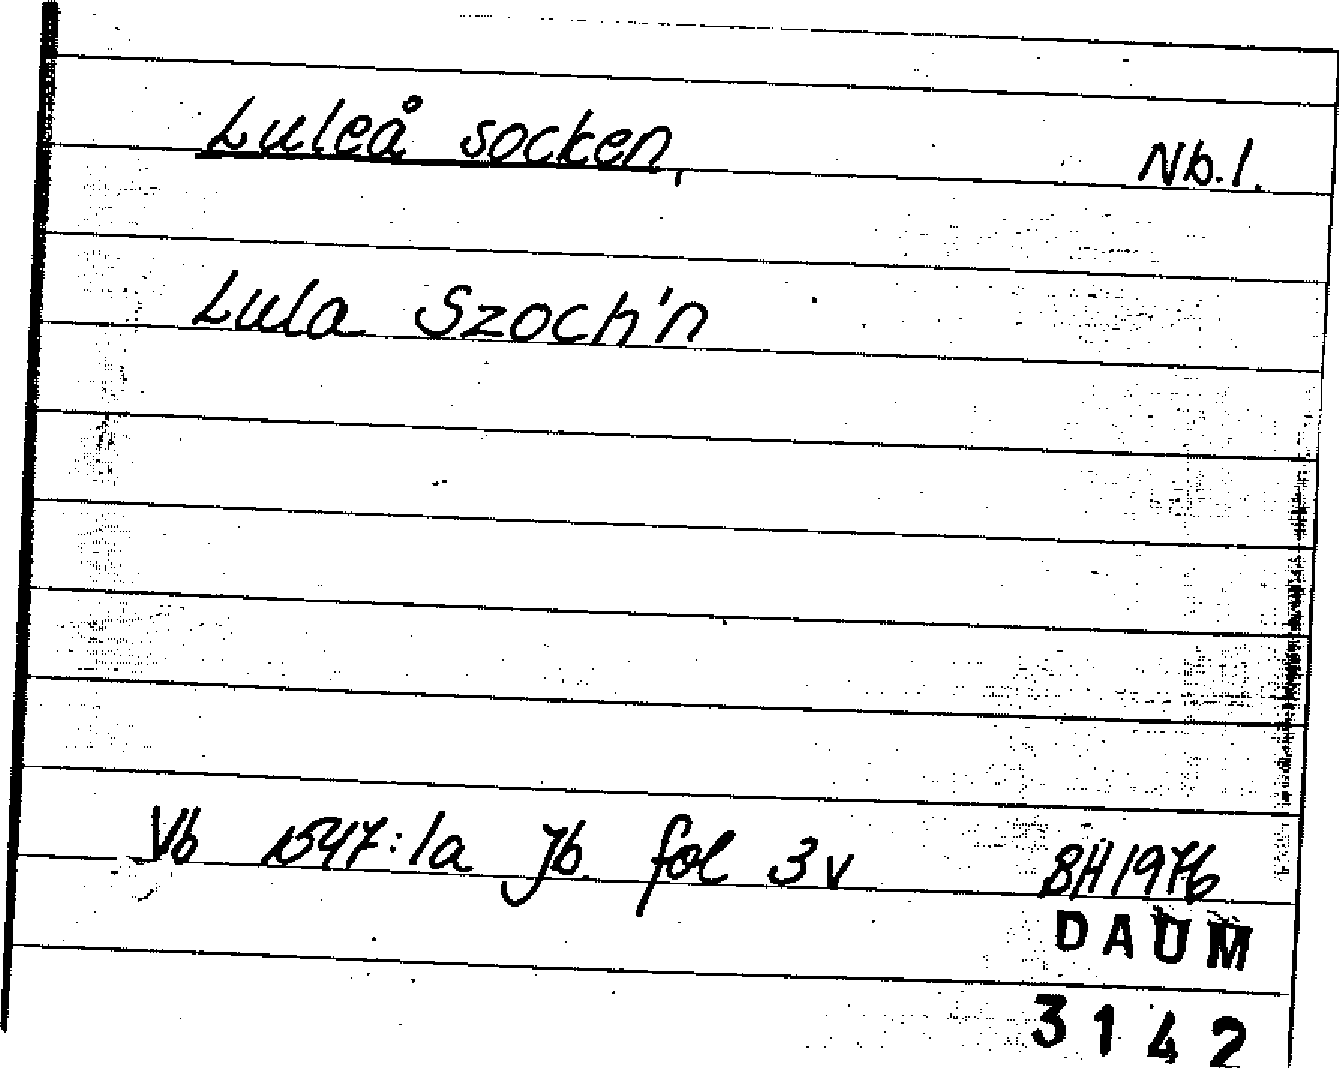 Luleå socken, Nb.l.
Lula Szoch'n
Vb 1547:1a Jb fol 3v BH 1976
DAUM
3142